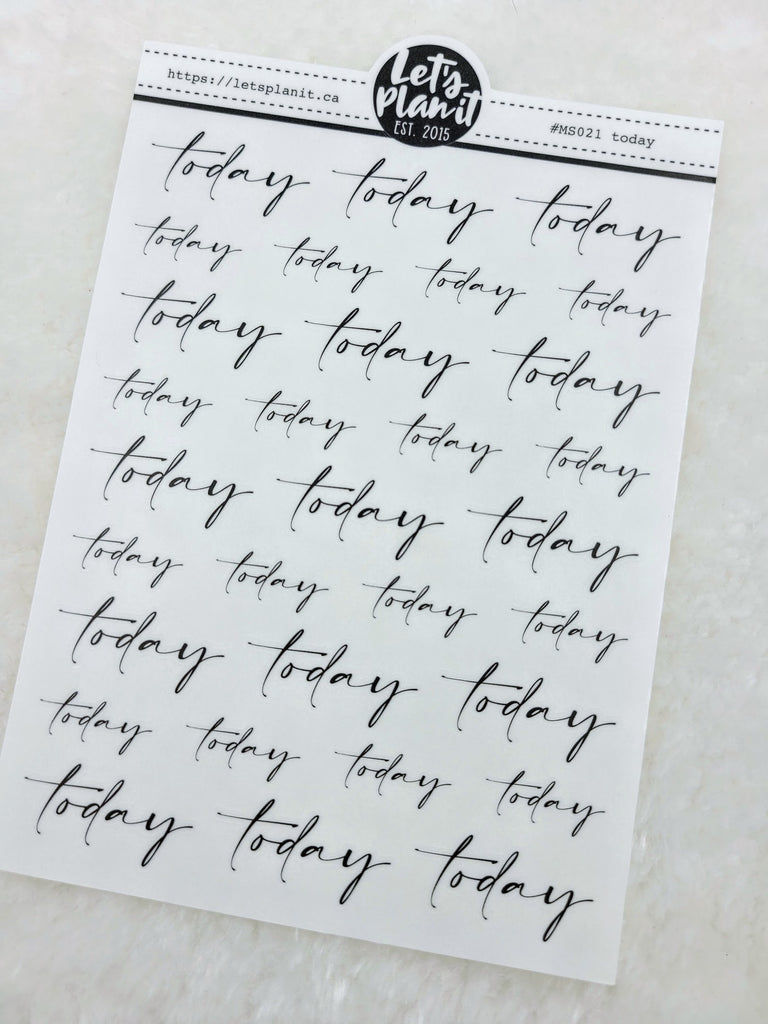 https://letsplanit.ca
Let's
Plan it
EST. 2015
#MS021 today
today today today
today today today today
today today today
today today today today
today today today
today today today today
today today today
today today today today
today today today